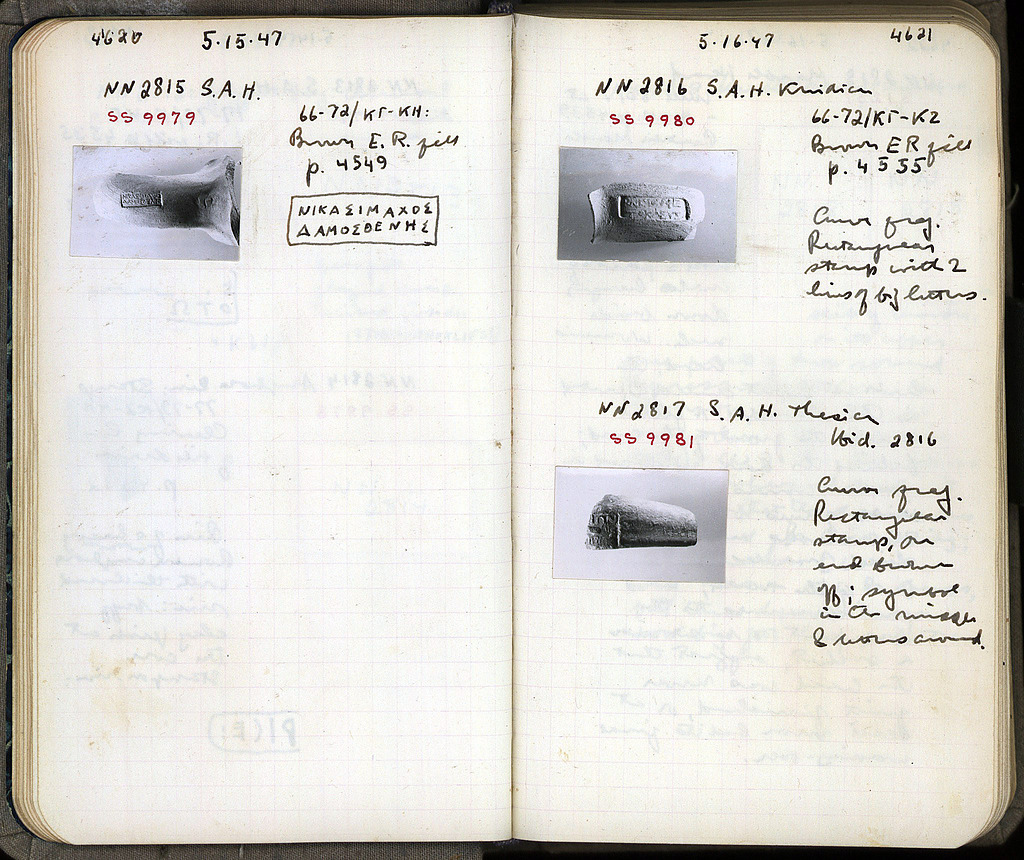 4620 5·15·47
NN 2815 S.A.H.
SS 9979
66-72/ΚΓ-ΚΗ:
Brown E.R. fill
p. 4549
ΝΙΚΑΣΙΜΑΧΟΣ
ΔΑΜΟΣΘΕΝΗΣ
5·16·47 4621
NN 2816 S.A.H. Knidian
SS 9980
66-72/ΚΓ-ΚZ
Brown ER fill
p. 4535
Curved frag.
Rectangular
stamp with 2
lines of letters.
NN 2817 S.A.H. Thasian
SS 9981
Ibid. 2816
Curved frag.
Rectangular
stamp, on
end broken
off; symbol
in the middle
& letters around.